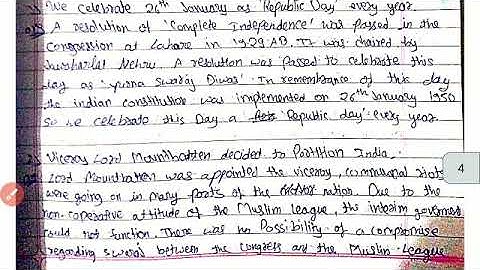 We celebrate 26th January as 'Republic Day' every year.
A resolution of 'Complete Independence' was passed in the
Congression at Lahore in 1929 AD. It was chaired by
Jawaharlal Nehru. A resolution was passed to celebrate this
day as 'purna Swaraj Diwas'. In remembrance of this day
the indian constitution was implemented on 26th January 1950
So we celebrate this Day a 'Republic day' every year.
Viceroy Lord Mountbatten decided to Partition India.
Lord Mountbatten was appointed the viceroy, communal riots
were going on in many parts of the nation. Due to the
non-cooperative attitude of the Muslim league, the interim government
could not function. There was no Possibility of a compromise
regarding swaraj between the Congress and the Muslim League
4